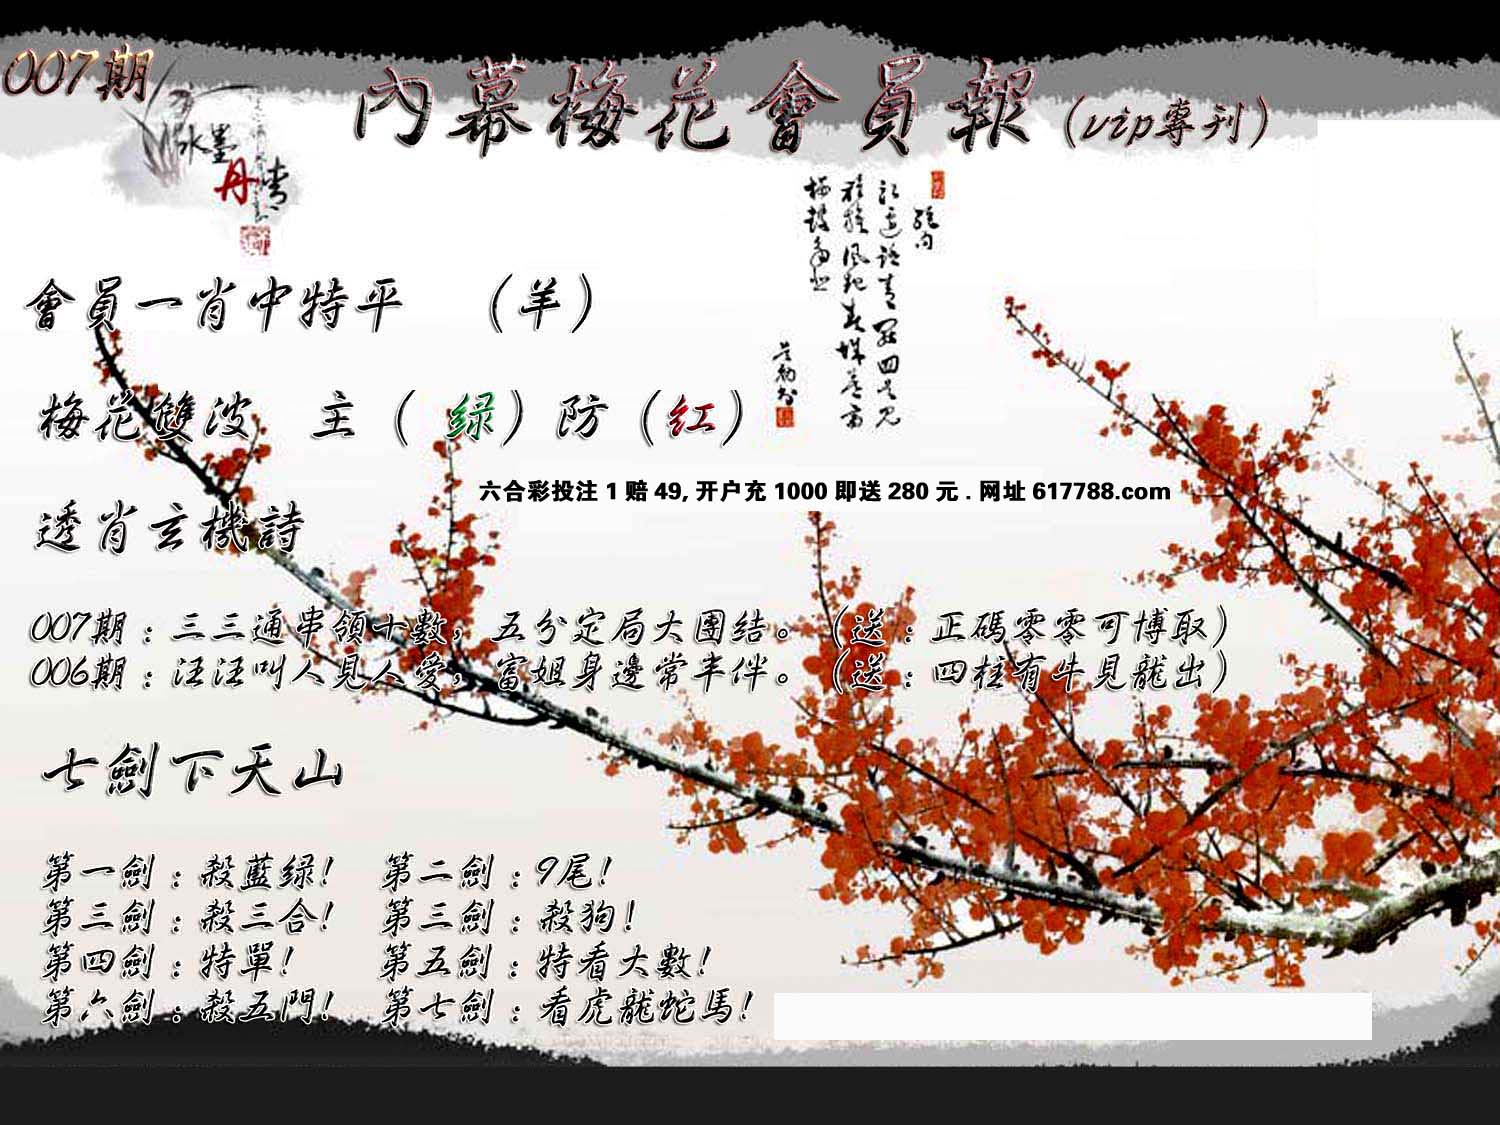 007期
內幕梅花會員報（vip專刊）
水墨
丹青
會員一肖中特平　（羊）
梅花雙波　主（绿）防（红）
六合彩投注1赔49,开户充1000即送280元.网址617788.com
透肖玄機詩
007期：三三通串領十數，五分定局大團结。（送：正碼零零可博取）
006期：汪汪叫人見人愛，富姐身邊常半伴。（送：四柱有牛見龍出）
七劍下天山
第一劍：殺藍绿！　第二劍：9尾！
第三劍：殺三合！　第三劍：殺狗！
第四劍：特單！　第五劍：特看大數！
第六劍：殺五門！　第七劍：看虎龍蛇馬！